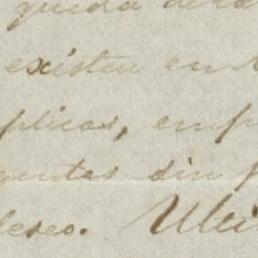 queda de
existen en
plicas, emp
gentes sin
deseo. Ulti